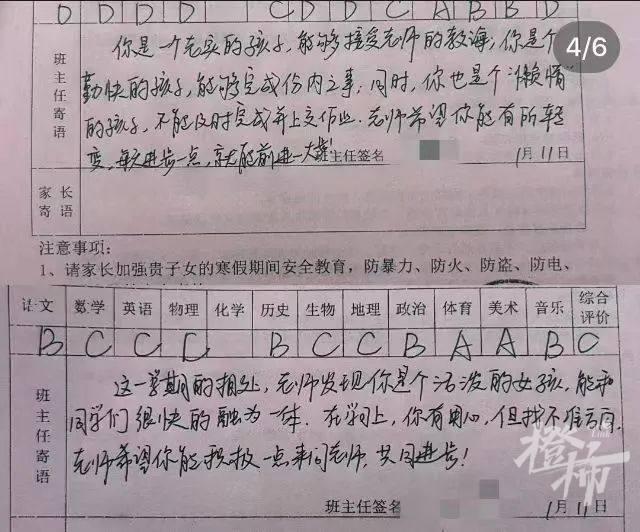 D D D D C D D C A B B D
4/6
班主任寄语
你是一个老实的孩子,能够接受老师的教诲;你是个
勤快的孩子,能够完成份内之事;同时,你也是个“懒惰”
的孩子,不能及时完成并上交作业.老师希望你能有所转
变,每天进步一点,就能前进一大步!
班主任签名 1月11日
家长寄语
注意事项:
1、请家长加强贵子女的寒假期间安全教育,防暴力、防火、防盗、防电、
语文 数学 英语 物理 化学 历史 生物 地理 政治 体育 美术 音乐 综合评价
B C C C B C C B A A B C
班主任寄语
这一学期的相处,老师发现你是个活泼的女孩,能和
同学们很快的融为一体.在学习上,你有用心,但找不准方向.
老师希望你能积极一点来问老师,共同进步!
班主任签名 1月11日
橙柿